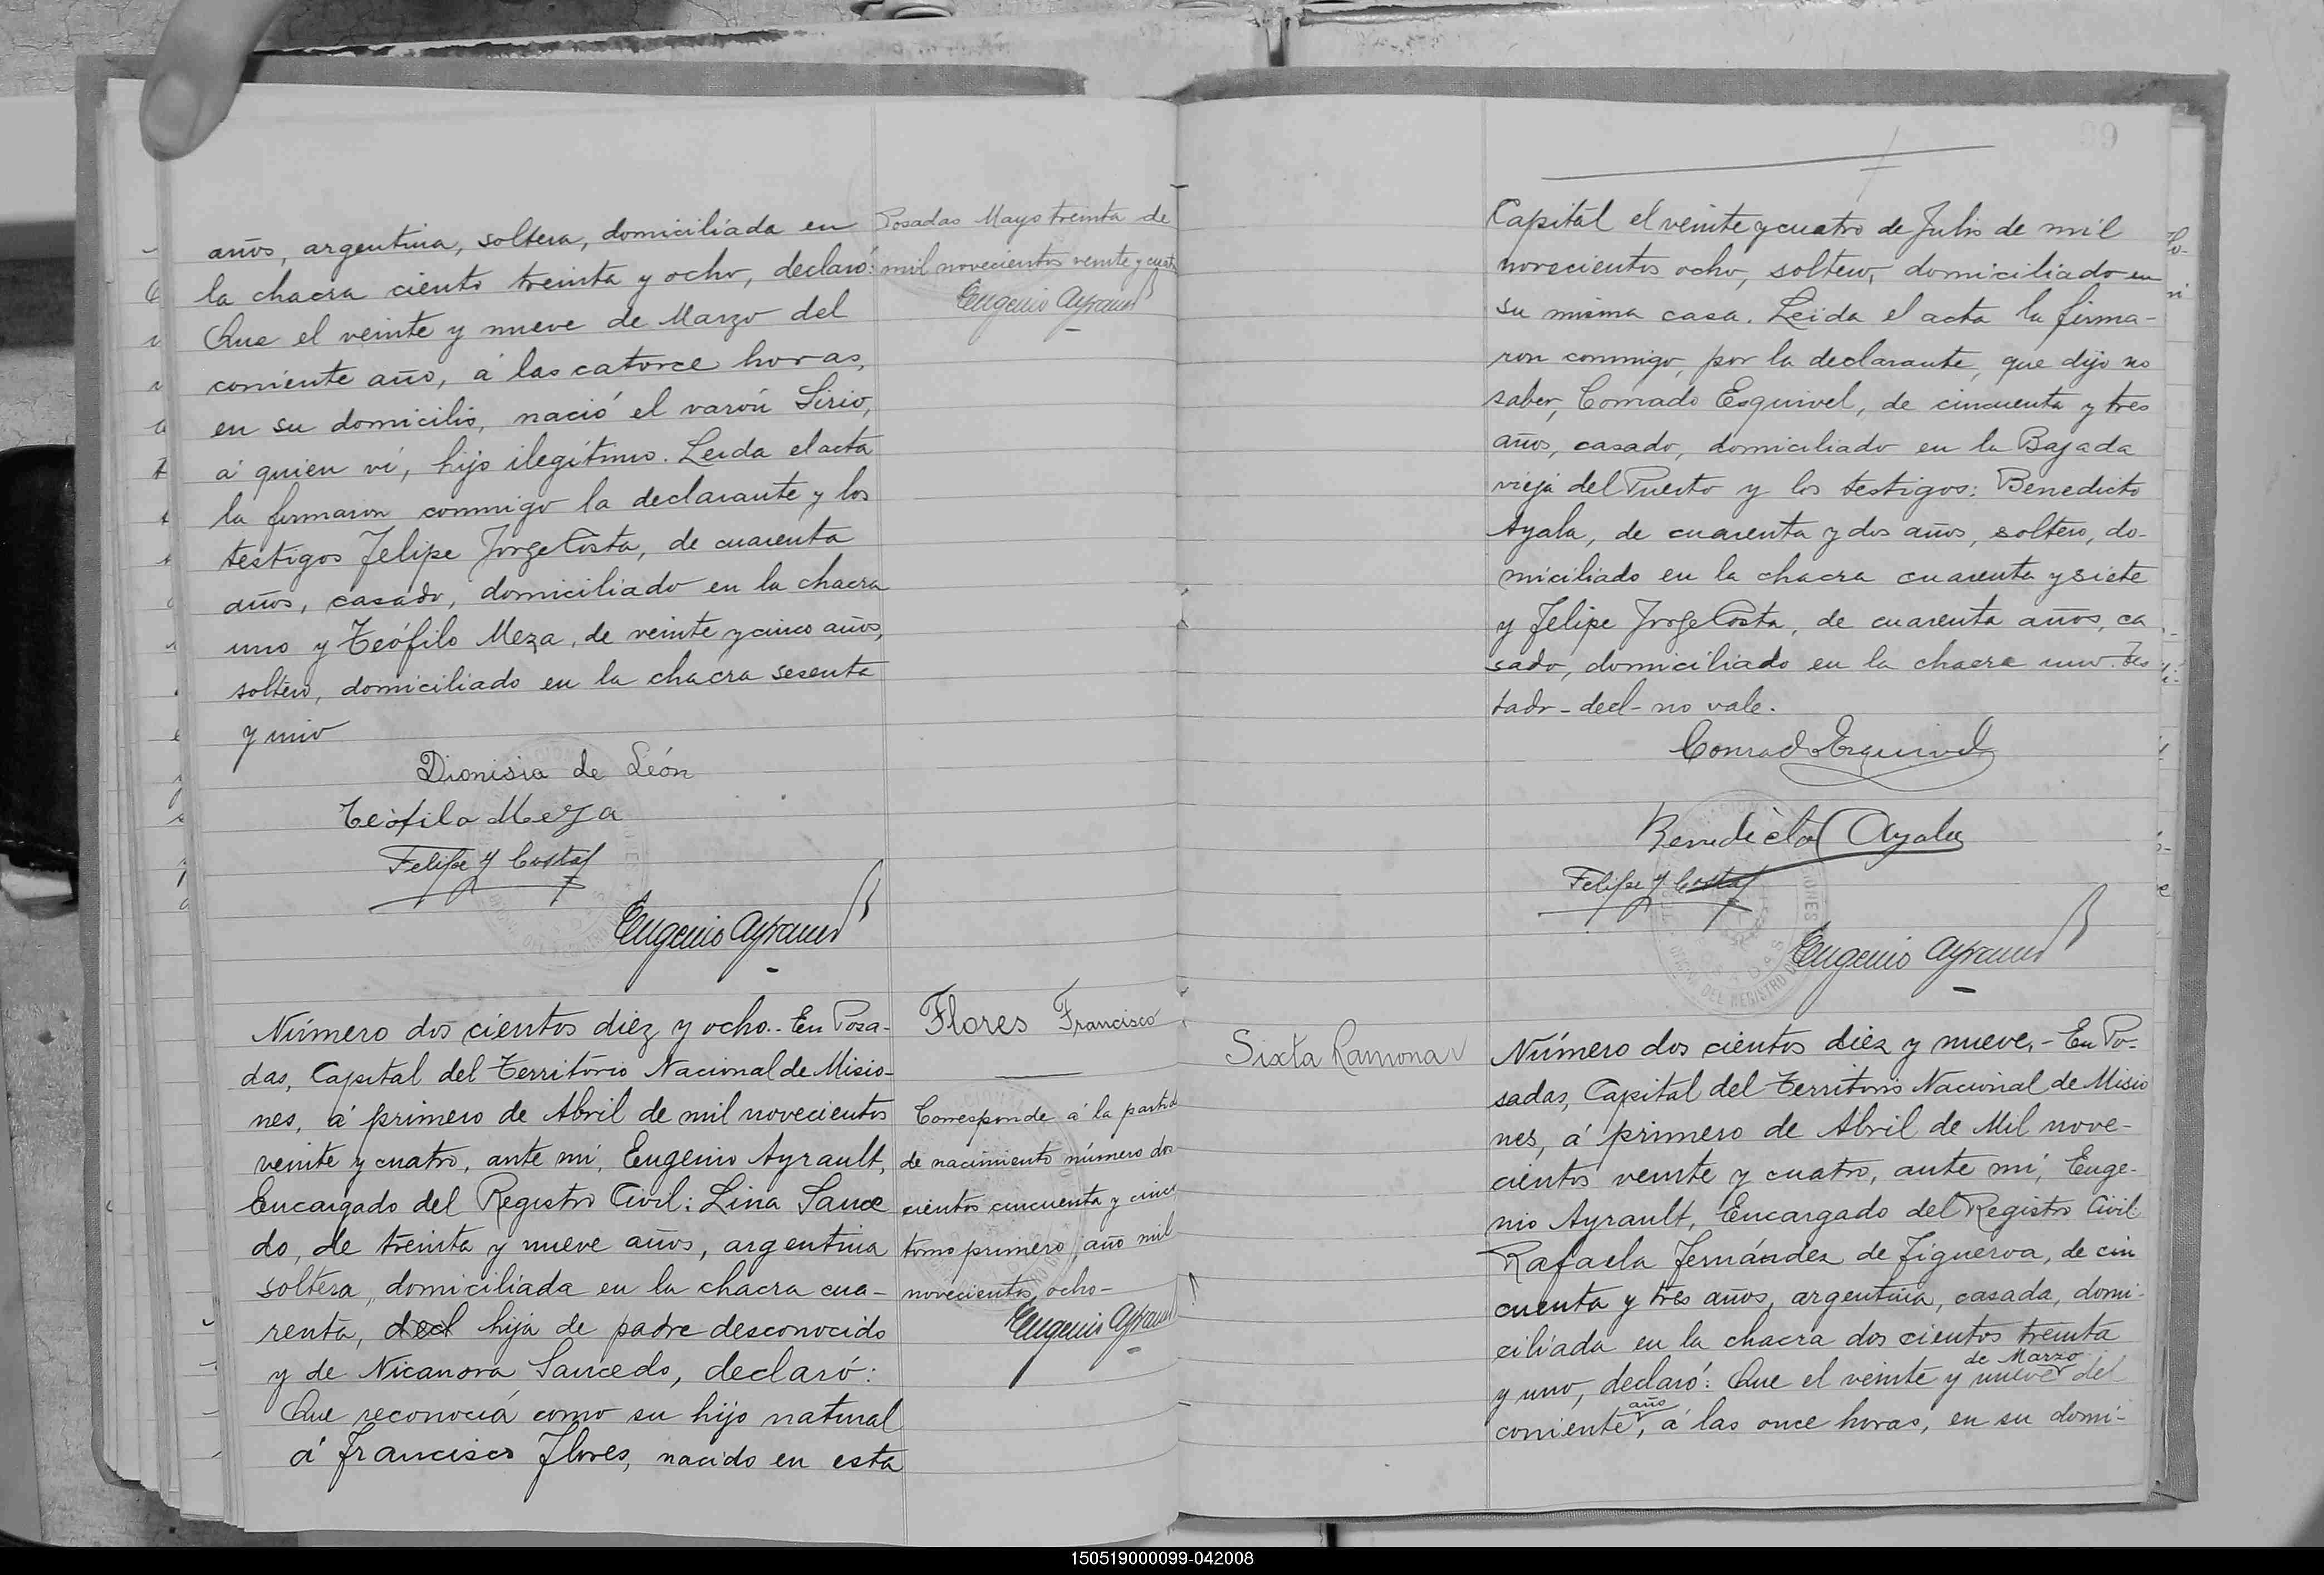 años, argentina, soltera, domiciliada en
la chacra ciento treinta y ocho, declaró:
Que el veinte y nueve de Marzo del
corriente año, á las catorce horas,
en su domicilio, nació el varón Sirio,
á quien ví, hijo ilegítimo. Leida el acta
la firmaron conmigo la declarante y los
testigos Felipe Jorge Costa, de cuarenta
años, casado, domiciliado en la chacra
uno y Teófilo Meza, de veinte y cinco años,
soltero, domiciliado en la chacra sesenta
y uno
Dionisia de León
Teófilo Meza
Felipe J Costa
Eugenio Ayrault
Posadas Mayo treinta de
mil novecientos veinte y cuatro
Eugenio Ayrault
Número dos cientos diez y ocho.- En Posa-
das, Capital del Territorio Nacional de Misio-
nes, á primero de Abril de mil novecientos
veinte y cuatro, ante mí, Eugenio Ayrault,
Encargado del Registro Civil: Lina Sauce
do, de treinta y nueve años, argentina
soltera, domiciliada en la chacra cua-
renta, decl hija de padre desconocido
y de Nicanora Saucedo, declaró:
Que reconocía como su hijo natural
á Francisco Flores, nacido en esta
Flores Francisco
Corresponde á la partida
de nacimiento número dos
cientos cincuenta y cinco
tomo primero, año mil
novecientos ocho-
Eugenio Ayrault
39
Capital el veinte y cuatro de Julio de mil
novecientos ocho, soltero, domiciliado en
su misma casa. Leida el acta la firma-
ron conmigo, por la declarante, que dijo no
saber, Conrado Esquivel, de cincuenta y tres
años, casado, domiciliado en la Bajada
vieja del Puerto y los testigos: Benedicto
Ayala, de cuarenta y dos años, soltero, do-
miciliado en la chacra cuarenta y siete
y Felipe Jorge Costa, de cuarenta años, ca
sado, domiciliado en la chacra uno. Tes
tado - decl - no vale.
Conrado Esquivel
Benedicto Ayala
Felipe J Costa
Eugenio Ayrault
Sixta Ramona
Número dos cientos diez y nueve.- En Po-
sadas, Capital del Territorio Nacional de Misio
nes, á primero de Abril de Mil nove-
cientos veinte y cuatro, ante mí, Euge-
nio Ayrault, Encargado del Registro Civil:
Rafaela Fernández de Figueroa, de cin
cuenta y tres años, argentina, casada, domi-
ciliada en la chacra dos cientos treinta
y uno, declaró: Que el veinte y nueve de Marzo del
corriente año, á las once horas, en su domi-
150519000099-042008